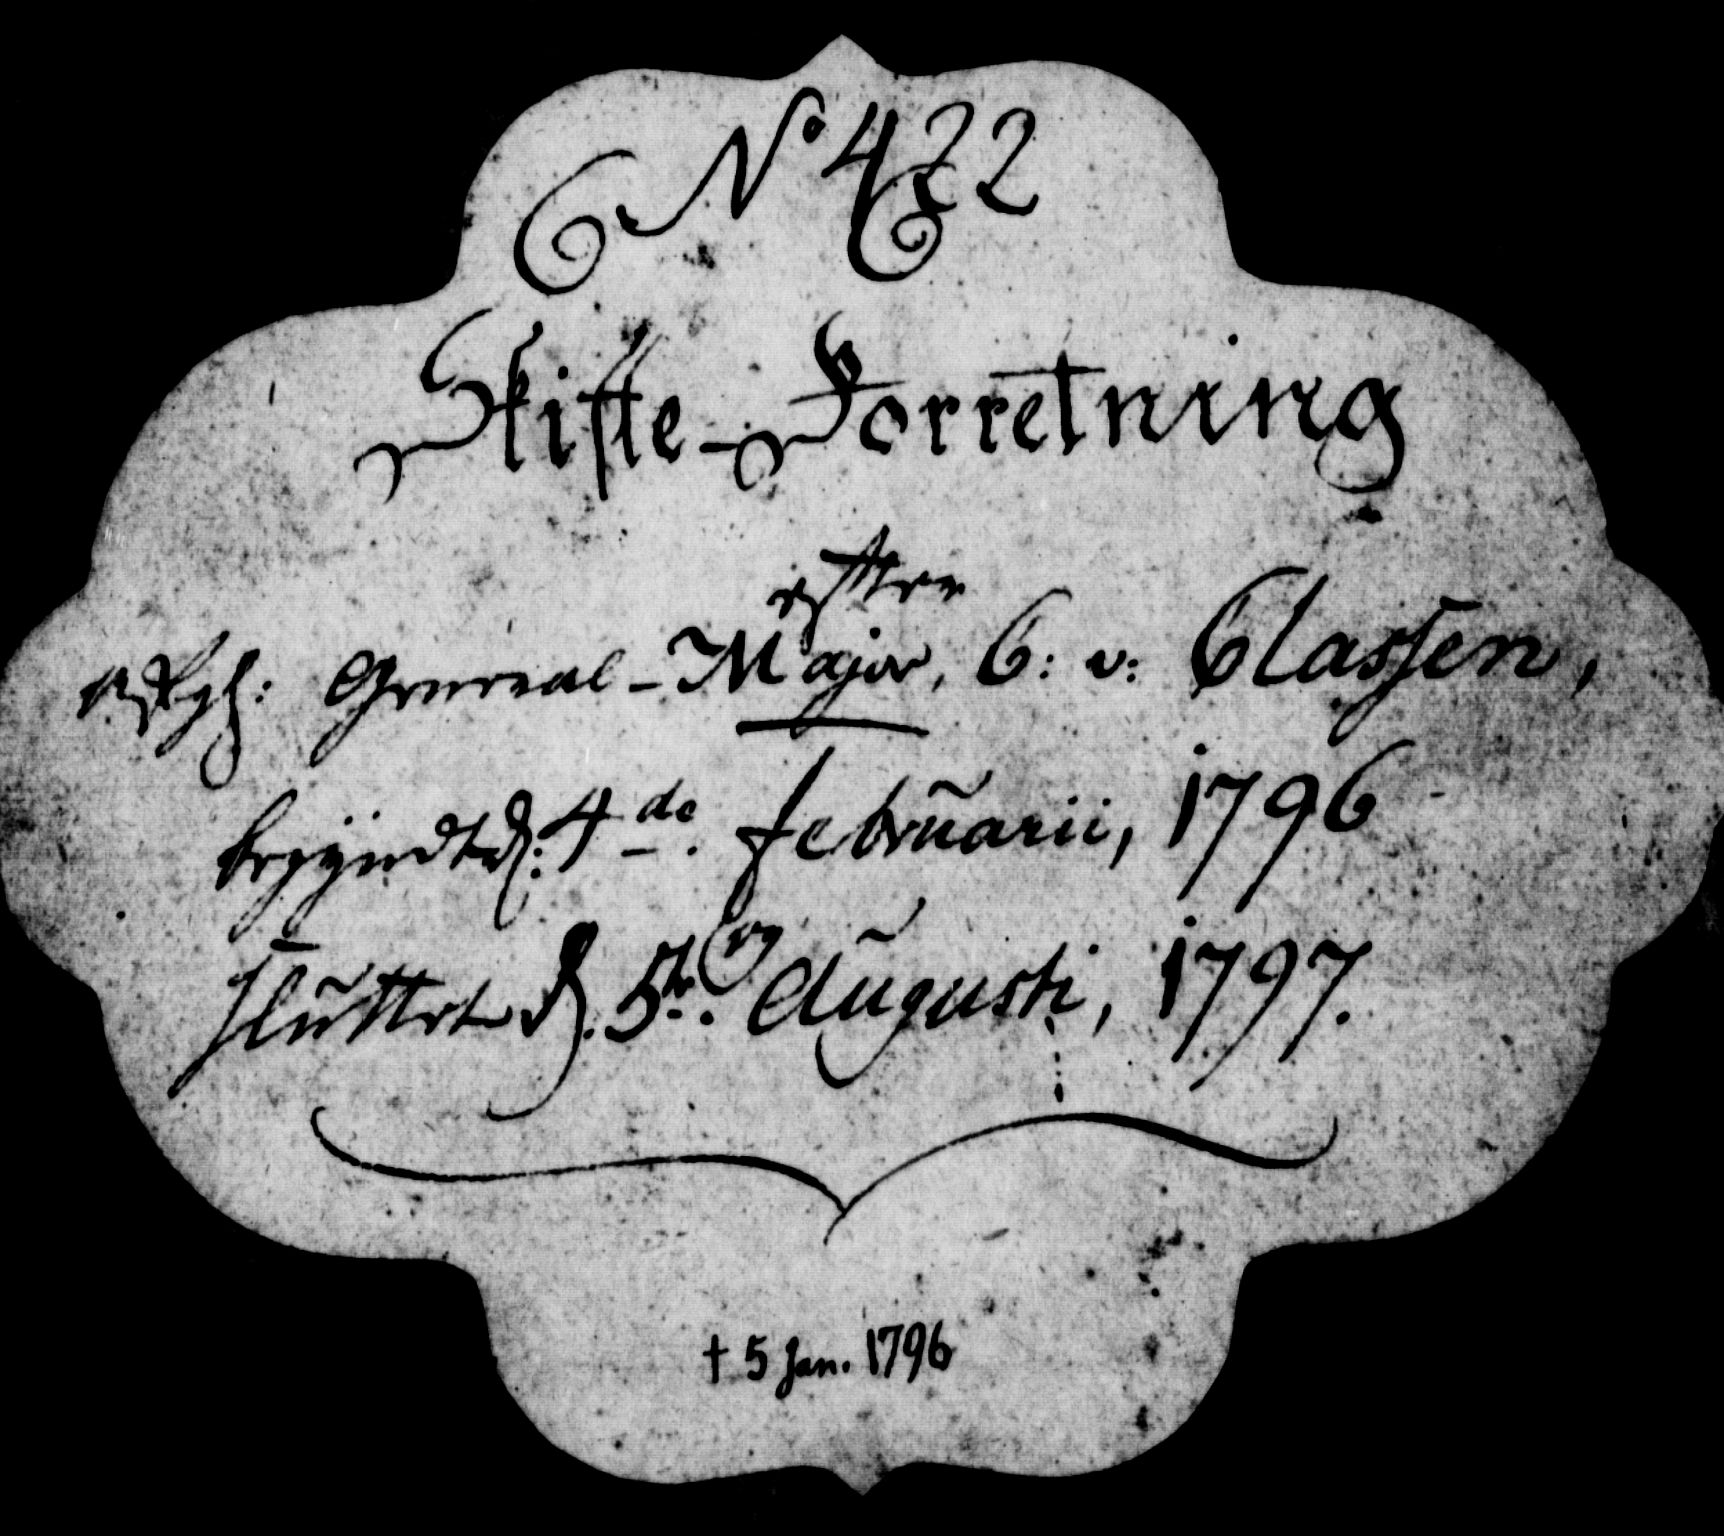 No 422
Skifte-Forretning
efter
afgh: General-Major, C: v: Classen,
begyndt d: 4de. februarii, 1796
og
sluttet d. 5te. Augusti, 1797.
† 5 Jan. 1796